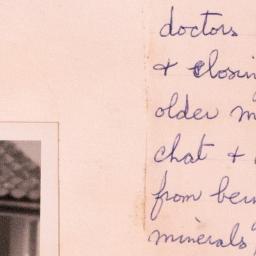 doctors
+ closin
older m
chat +
from ber
minerals